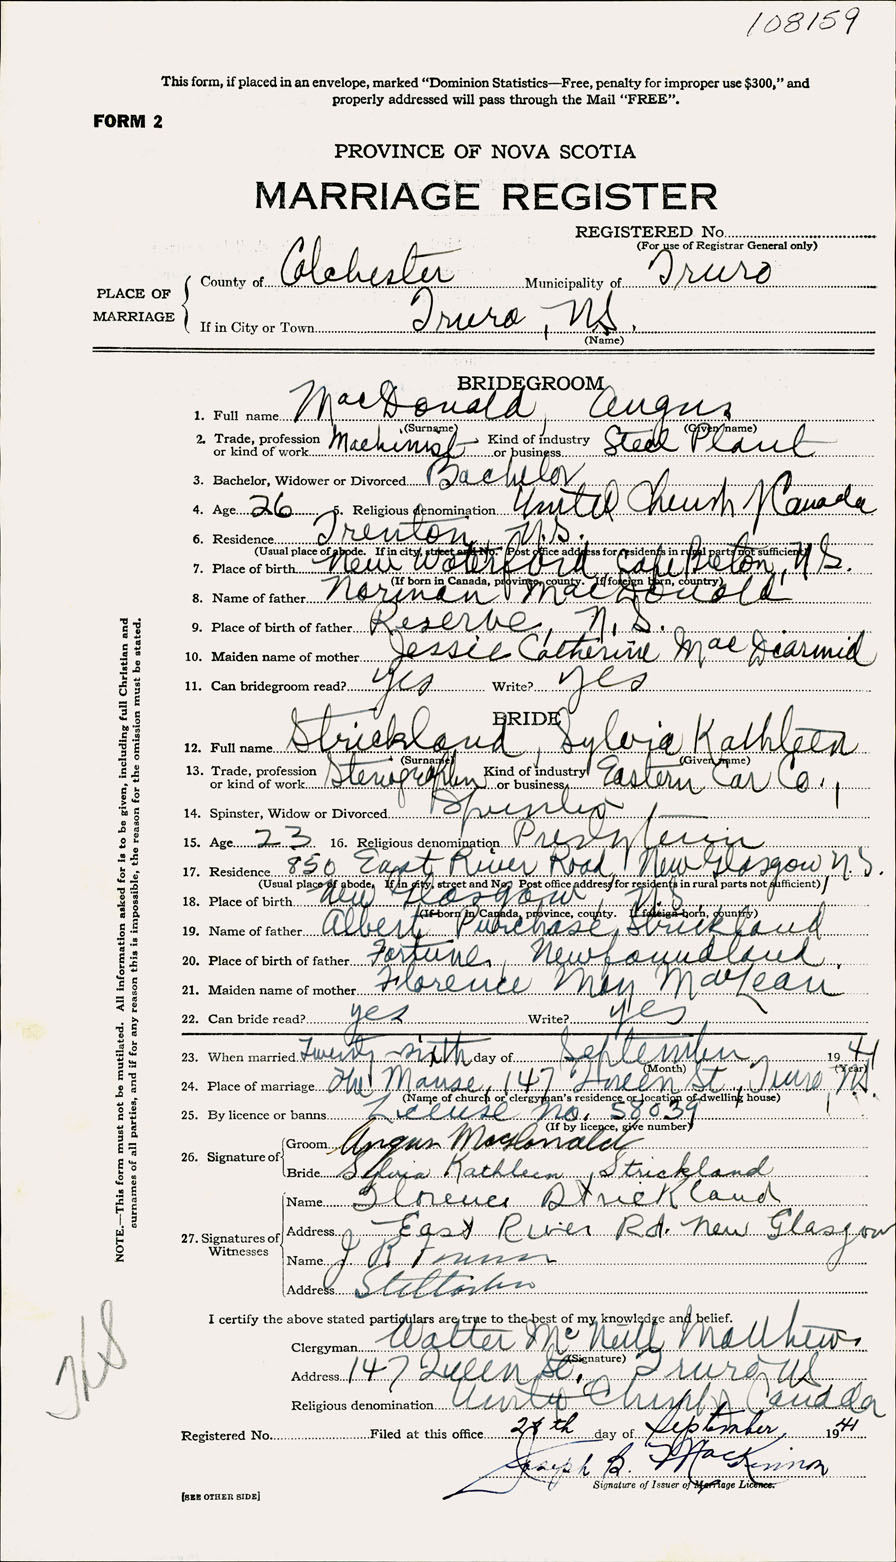 108159
This form, if placed in an envelope, marked "Dominion Statistics—Free, penalty for improper use $300," and
properly addressed will pass through the Mail "FREE".
FORM 2
PROVINCE OF NOVA SCOTIA
MARRIAGE REGISTER
REGISTERED No.
(For use of Registrar General only)
PLACE OF MARRIAGE
County of Colchester Municipality of Truro
If in City or Town Truro, N.S.
(Name)
BRIDEGROOM
1. Full name MacDonald, Angus
(Surname) (Given name)
2. Trade, profession or kind of work Machinist Kind of industry or business Steel Plant
3. Bachelor, Widower or Divorced Bachelor
4. Age 26 5. Religious denomination United Church of Canada
6. Residence Trenton, N.S.
(Usual place of abode. If in city, street and No. Post office address for residents in rural parts not sufficient)
7. Place of birth New Waterford, Cape Breton, N.S.
(If born in Canada, province, county. If foreign born, country)
8. Name of father Norman MacDonald
9. Place of birth of father Reserve, N.S.
10. Maiden name of mother Jessie Catherine MacDiarmid
11. Can bridegroom read? yes Write? yes
BRIDE
12. Full name Strickland, Sylvia Kathleen
(Surname) (Given name)
13. Trade, profession or kind of work Stenographer Kind of industry or business Eastern Car Co.,
14. Spinster, Widow or Divorced Spinster
15. Age 23 16. Religious denomination Presbyterian
17. Residence 850 East River Road, New Glasgow N.S.
(Usual place of abode. If in city, street and No. Post office address for residents in rural parts not sufficient)
18. Place of birth New Glasgow, N.S.
(If born in Canada, province, county. If foreign born, country)
19. Name of father Albert Purchase Strickland
20. Place of birth of father Fortune, Newfoundland
21. Maiden name of mother Florence May MacLean
22. Can bride read? yes Write? yes
23. When married Twenty-sixth day of September 1941
(Month) (Year)
24. Place of marriage The Manse, 147 Queen St., Truro N.S.
(Name of church or clergyman's residence or location of dwelling house)
25. By licence or banns License No. 58039
(If by licence, give number)
26. Signature of
Groom Angus MacDonald
Bride Sylvia Kathleen Strickland
27. Signatures of Witnesses
Name Florence Strickland
Address East River Rd. New Glasgow
Name J R
Address Stellarton
I certify the above stated particulars are true to the best of my knowledge and belief.
Clergyman Walter McNeill Matthews
(Signature)
Address 147 Queen St., Truro, N.S.
Religious denomination United Church of Canada
Registered No. Filed at this office 28th day of September 1941
Joseph B. MacKinnon
Signature of Issuer of Marriage Licence.
[SEE OTHER SIDE]
NOTE.—This form must not be mutilated. All information asked for is to be given, including full Christian and
surnames of all parties, and if for any reason this is impossible, the reason for the omission must be stated.